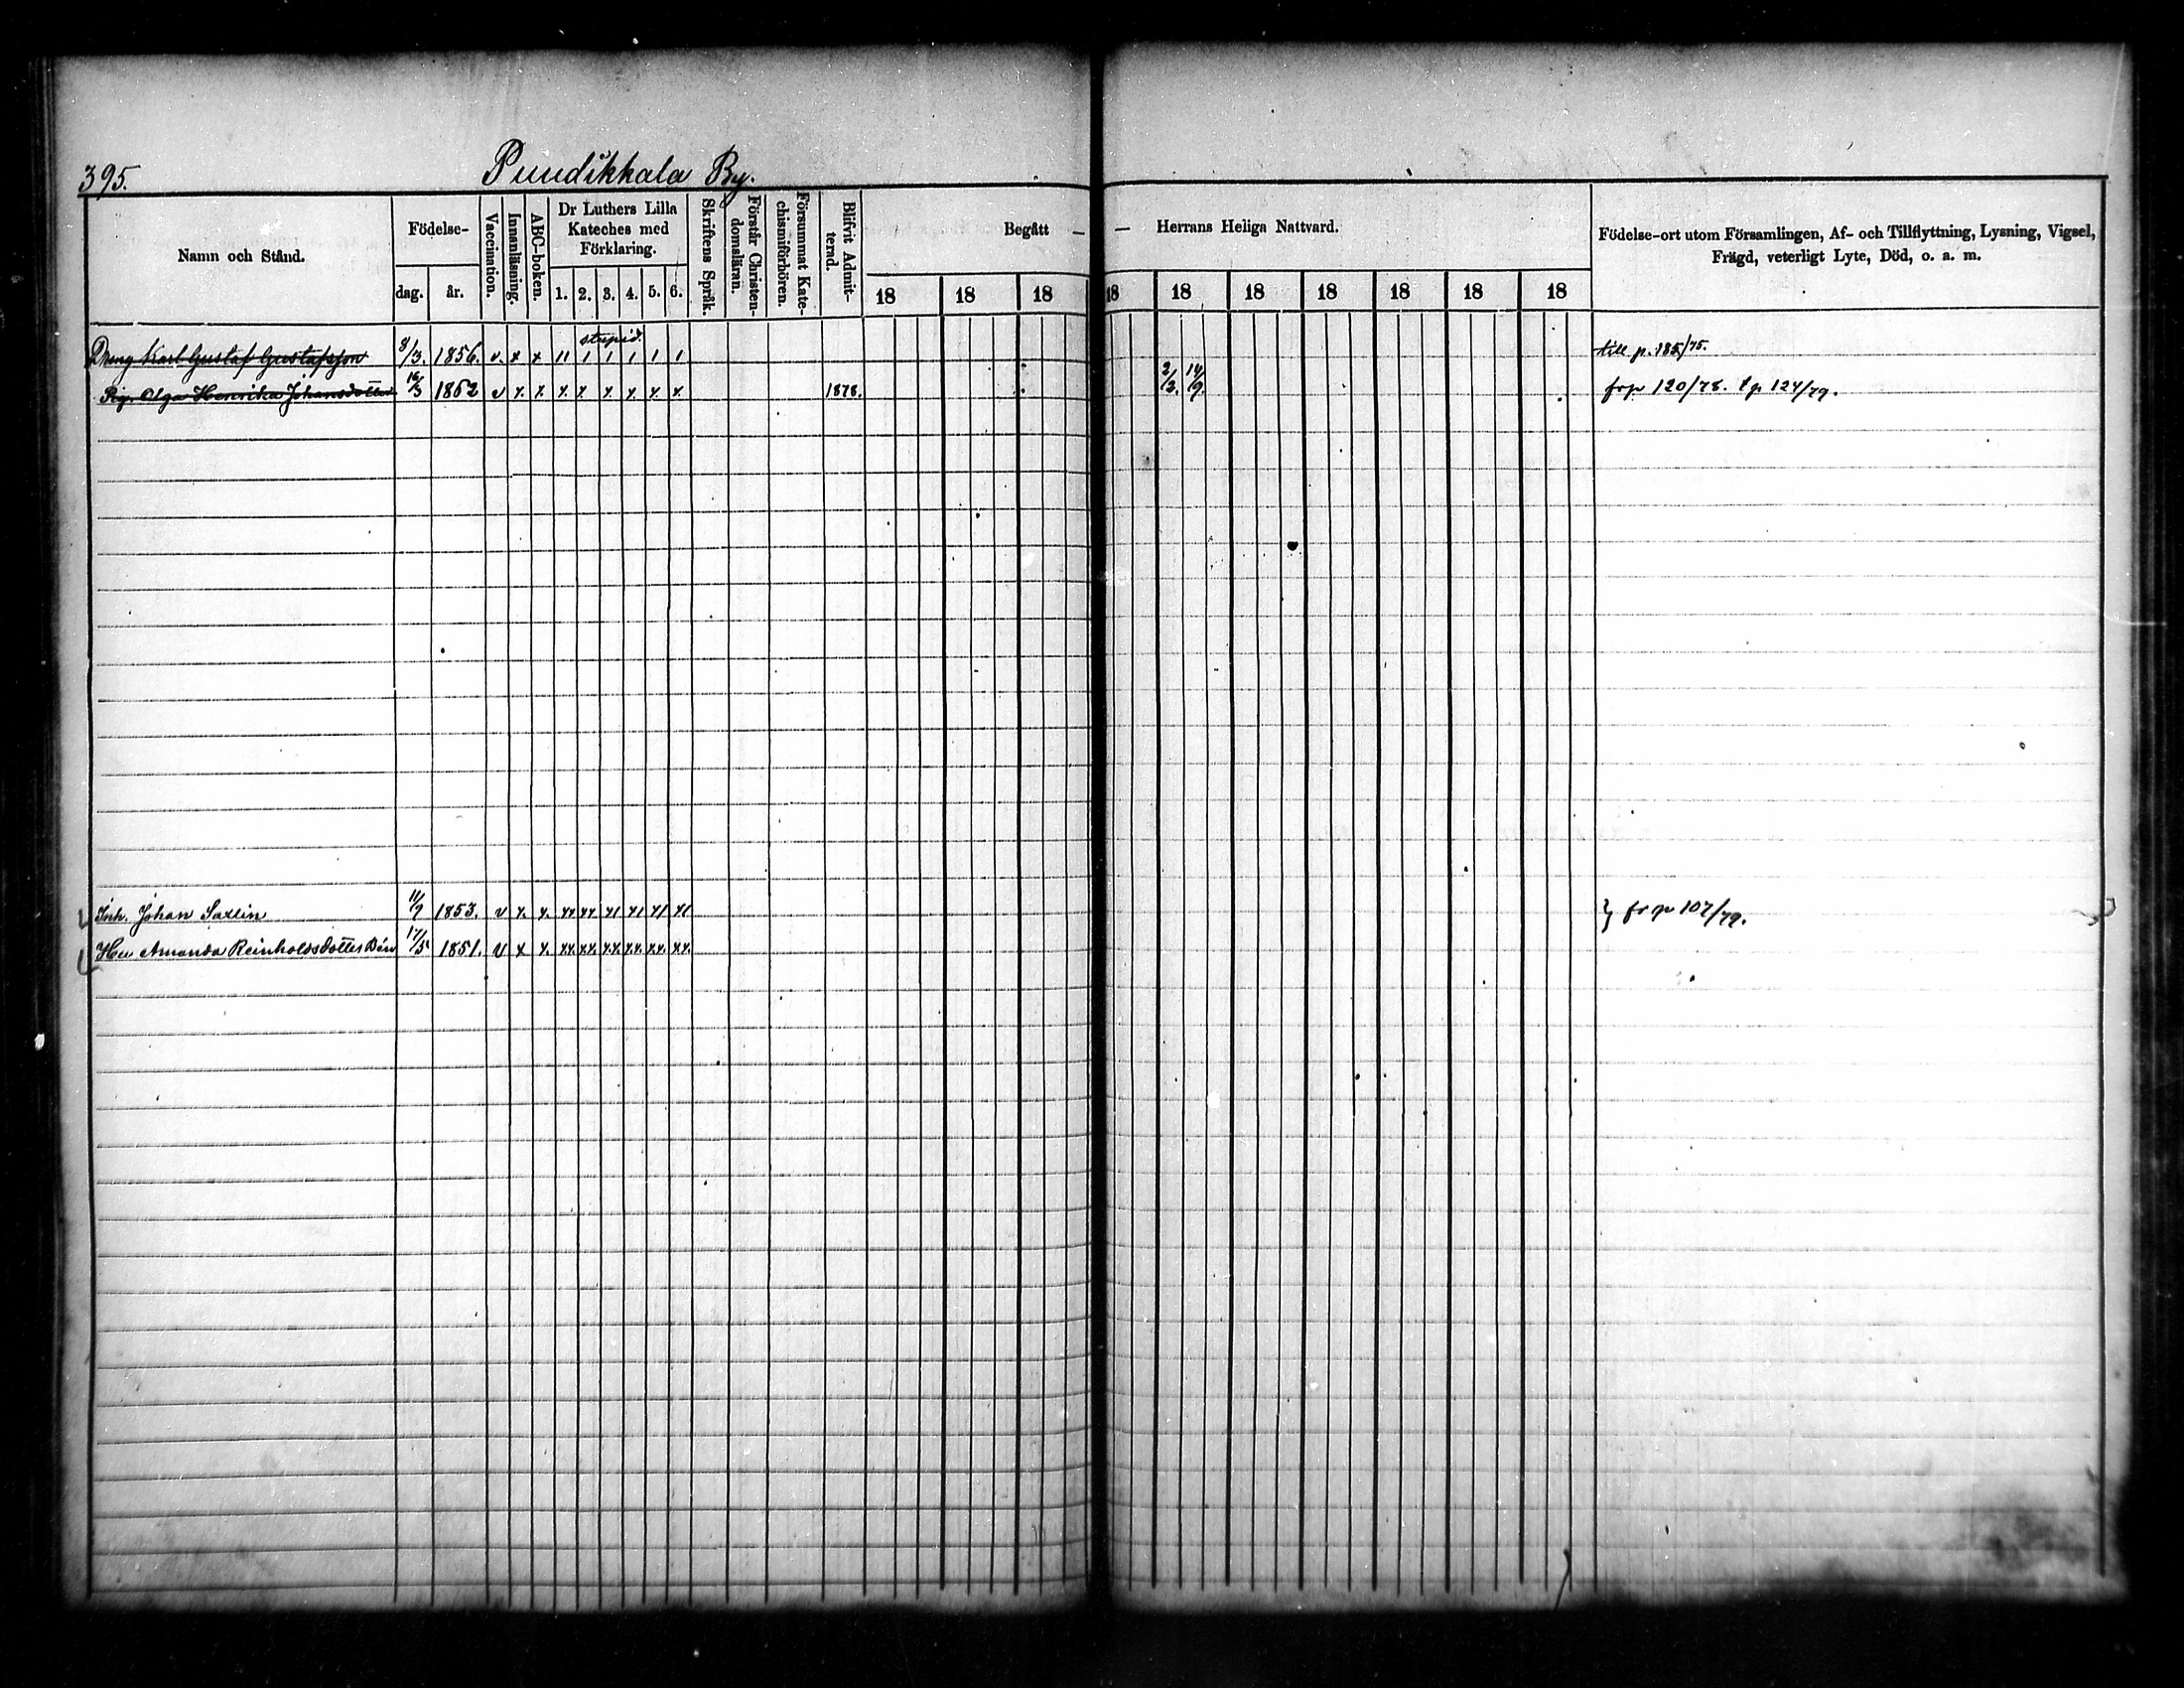 395.
Pundikkala By.
Namn och Stånd.
Födelse-
dag.
år.
Vaccination.
Innanläsning.
ABC-boken.
Dr Luthers Lilla
Kateches med
Förklaring.
1. 2. 3. 4. 5. 6.
Skriftens Språk.
Förstår Christen-
domsläran.
Försummat Kate-
chismiförhören.
Blifvit Admit-
terad.
Begått — — Herrans Heliga Nattvard.
18 18 18 18 18 18 18 18 18 18
Födelse-ort utom Församlingen, Af- och Tillflyttning, Lysning, Vigsel,
Frägd, veterligt Lyte, Död, o. a. m.
stupid.
Dreng Karl Gustaf Gustafsson 8/3. 1856. v. x x 11 1 1 1 1 1 till p. 185/75.
Pig. Olga Henrika Johansdotter 16/3 1862 v x. x. x. x x. x. x. x. 1878. 2/3. 14/9. frp 120/78. tp 124/79.
Inh. Johan Saxlin 11/9 1853. v x. x. xx xx x1 x1 x1 x1 } frp 107/79.
Hu Amanda Reinholdsdotter 17/5 1851. v x x. xx. xx. xx. xx. xx. xx.